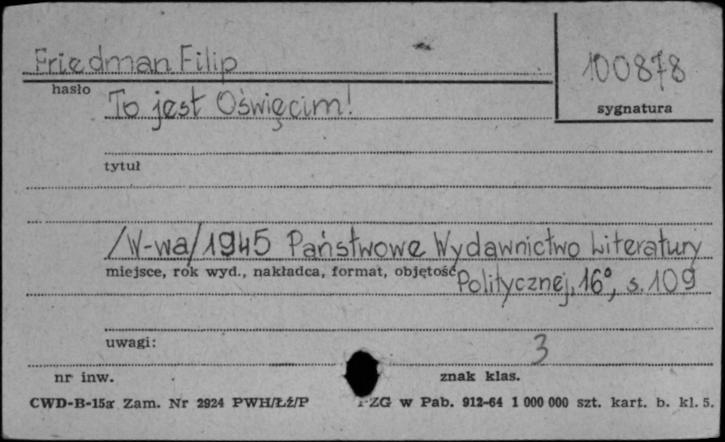 Friedman Filip
100878
hasło
sygnatura
To jest Oświęcim!
tytuł
/W-wa/1945 Państwowe Wydawnictwo Literatury
miejsce, rok wyd., nakładca, format, objętość
Politycznej, 16°, s. 109
uwagi:
3
nr inw.
znak klas.
CWD-B-15a Zam. Nr 2924 PWH/Łź/P
PZG w Pab. 912-64 1 000 000 szt. kart. b. kl. 5.